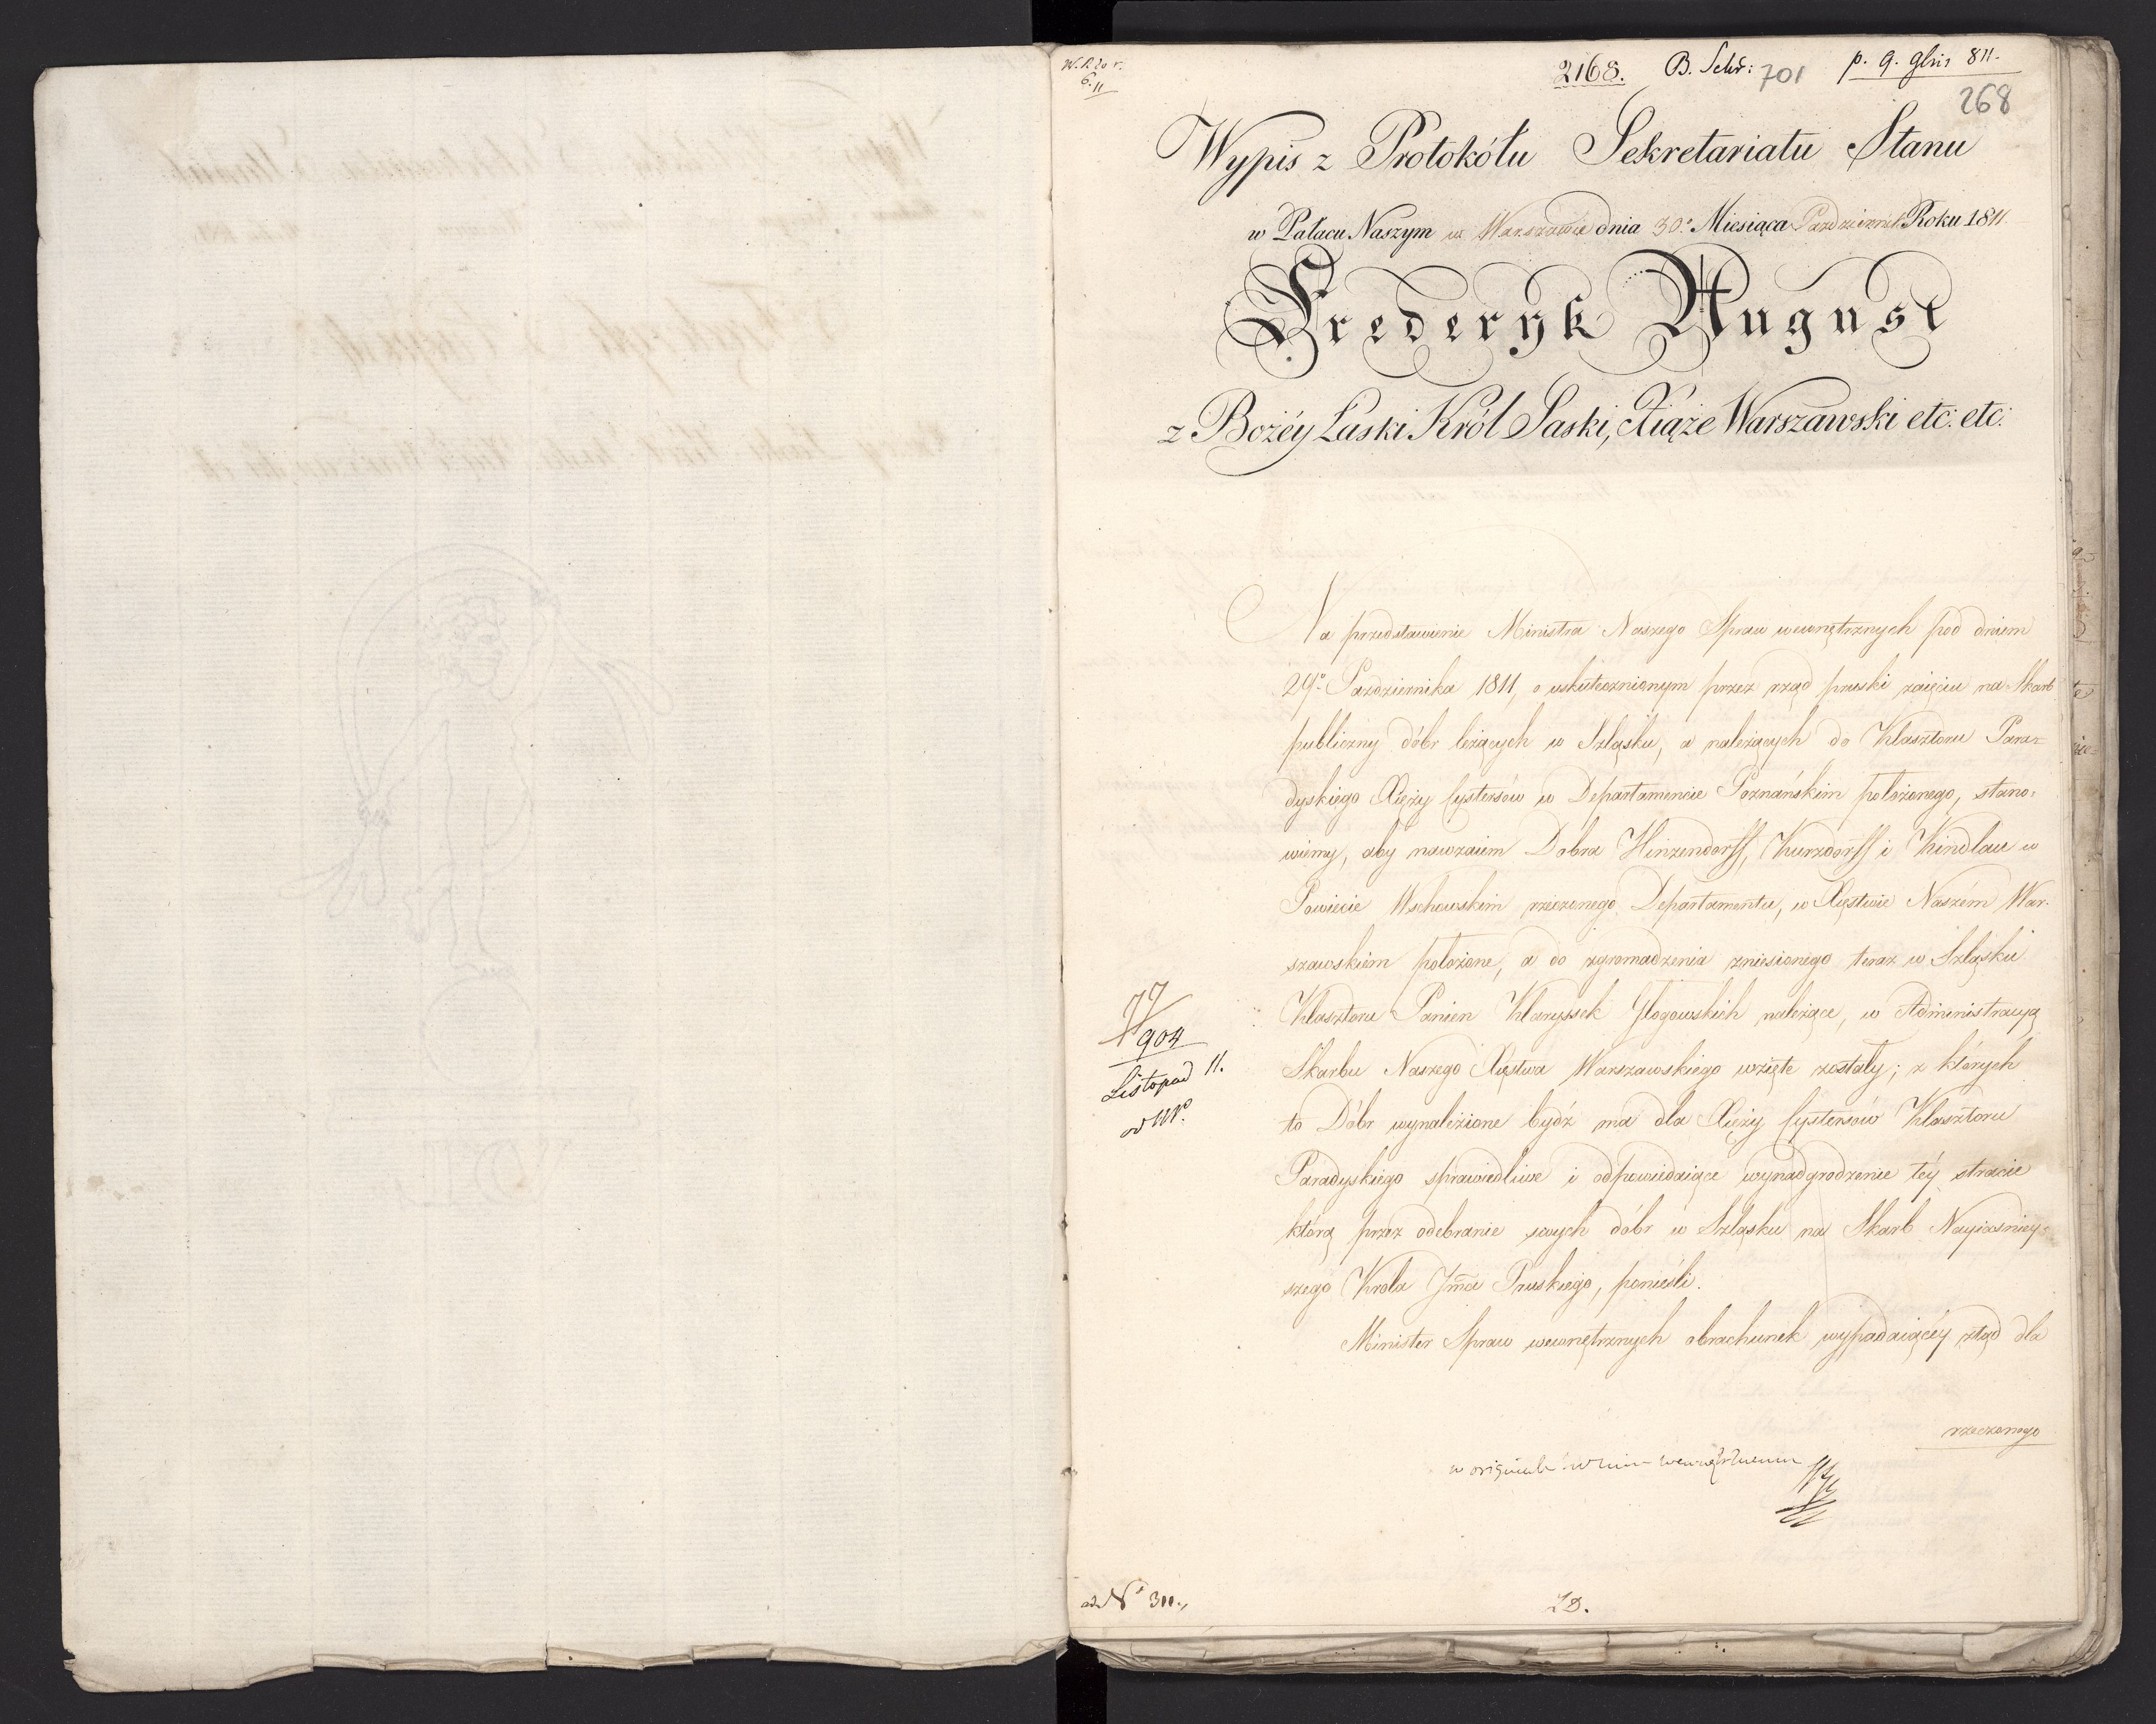 2168. B. Schr: 701 p. 9. 9bris 811.
268
6. 11
Wypis z Protokółu Sekretariatu Stanu
w Pałacu Naszym w Warszawie dnia 30.º Miesiąca Pazdziernik. Roku 1811.
Frederyk August
z Bożéy Łaski Król Saski, Xiąże Warszawski etc: etc:
Na przedstawienie Ministra Naszego Spraw wewnętrznych pod dniem
29º Pazdziernika 1811, o uskutecznionym przez rząd pruski zaięciu na Skarb
publiczny dóbr leżących w Szląsku, a należących do Klasztoru Para=
dyskiego Xięży Cystersów w Departamencie Poznańskim położonego, stano=
wiemy, aby nawzaiem Dobra Hinzendorff, Kurzdorff i Kindlau w
Powiecie Wschowskim rzeczonego Departamentu, w Xięstwie Naszém War=
szawskiém położone, a do zgromadzenia zniesionego teraz w Szląsku
Klasztoru Panien Klaryssek Głogowskich należące, w Administracyą
Skarbu Naszego Xięstwa Warszawskiego wzięte zostały; z których
to Dóbr wynalezione bydź ma dla Xięży Cystersów Klasztoru
Paradyskiego sprawiedliwe i odpowiedaiące wynadgrodzenie téy stracie
którą przez odebranie swych dóbr w Szląsku na Skarb Nayiasniey=
szego Krola Jmci Pruskiego, ponieśli.
Minister Spraw wewnętrznych obrachunek wypadaiącéy ztąd dla
rzeczonego
904
Listopad 11.
w originale
ad Nº 311.,